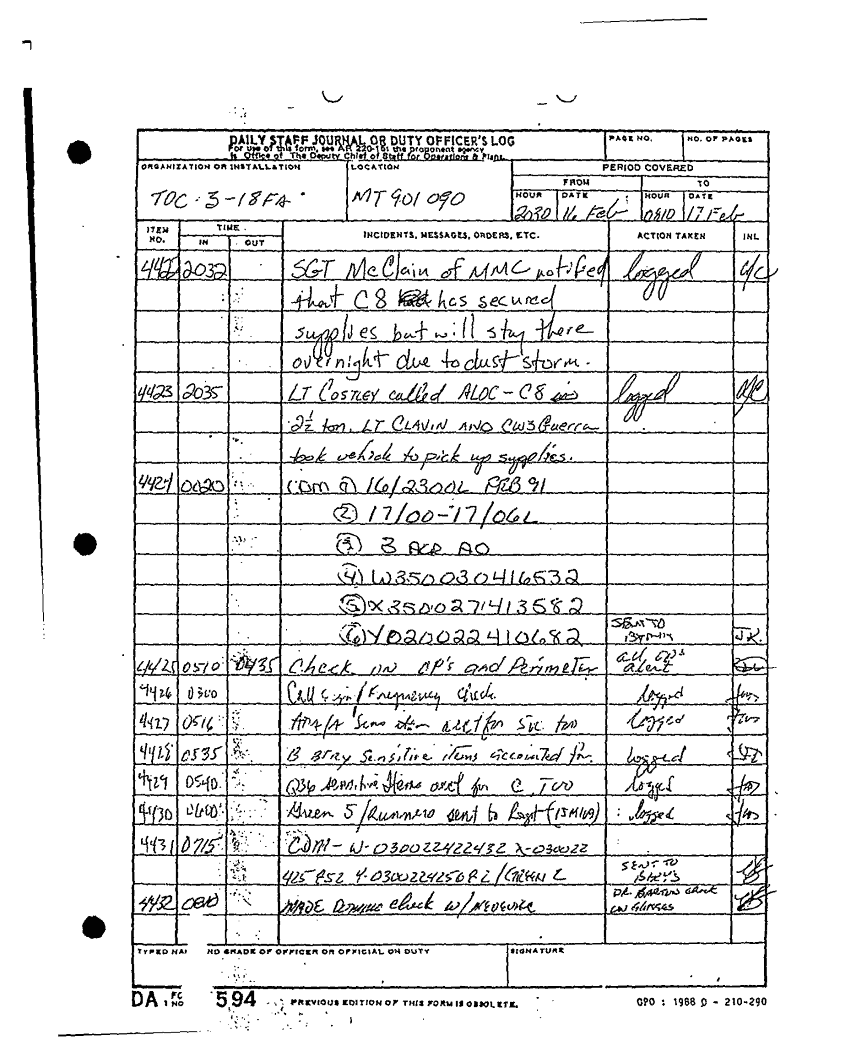 DAILY STAFF JOURNAL OR DUTY OFFICER'S LOG
For use of this form, see AR 220-15; the proponent agency
is Office of The Deputy Chief of Staff for Operations & Plans.
PAGE NO.
NO. OF PAGES
ORGANIZATION OR INSTALLATION
TOC 3-18FA
LOCATION
MT 901 090
PERIOD COVERED
FROM TO
HOUR DATE HOUR DATE
2030 16 Feb 0810 17 Feb
ITEM NO. TIME IN OUT INCIDENTS, MESSAGES, ORDERS, ETC. ACTION TAKEN INL
4422 2032 SGT McClain of MMC notified logged
that C8 has secured
supplies but will stay there
overnight due to dust storm.
4423 2035 LT COSTLEY called ALOC - C8 in logged
2½ ton. LT CLAVIN AND CW3 Guerra
took vehicle to pick up supplies.
4424 0020 CDM ① 16/2300L FEB 91
② 17/00-17/06L
③ 3 ACR AO
④ W350030416532
⑤ X350027413582
⑥ Y020022410682 SENT TO J.R.
4425 0510 0435 Check on OP's and Perimeter all OP's alert
4426 0300 Call sign/Frequency check logged
4427 0516 acct for logged
4428 0535 B BTRY Sensitive items accounted for. logged
4429 0540 Q36 sensitive Items acct for logged
4430 0600 Green 5/Runners sent to Regt logged
4431 0715 CDM- W-030022422432 X-030022
SENT TO BTRYS
4432 0810 MADE check w/
TYPED NA ND GRADE OF OFFICER OR OFFICIAL ON DUTY
SIGNATURE
DA 1 594 PREVIOUS EDITION OF THIS FORM IS OBSOLETE. GPO : 1988 O - 210-290